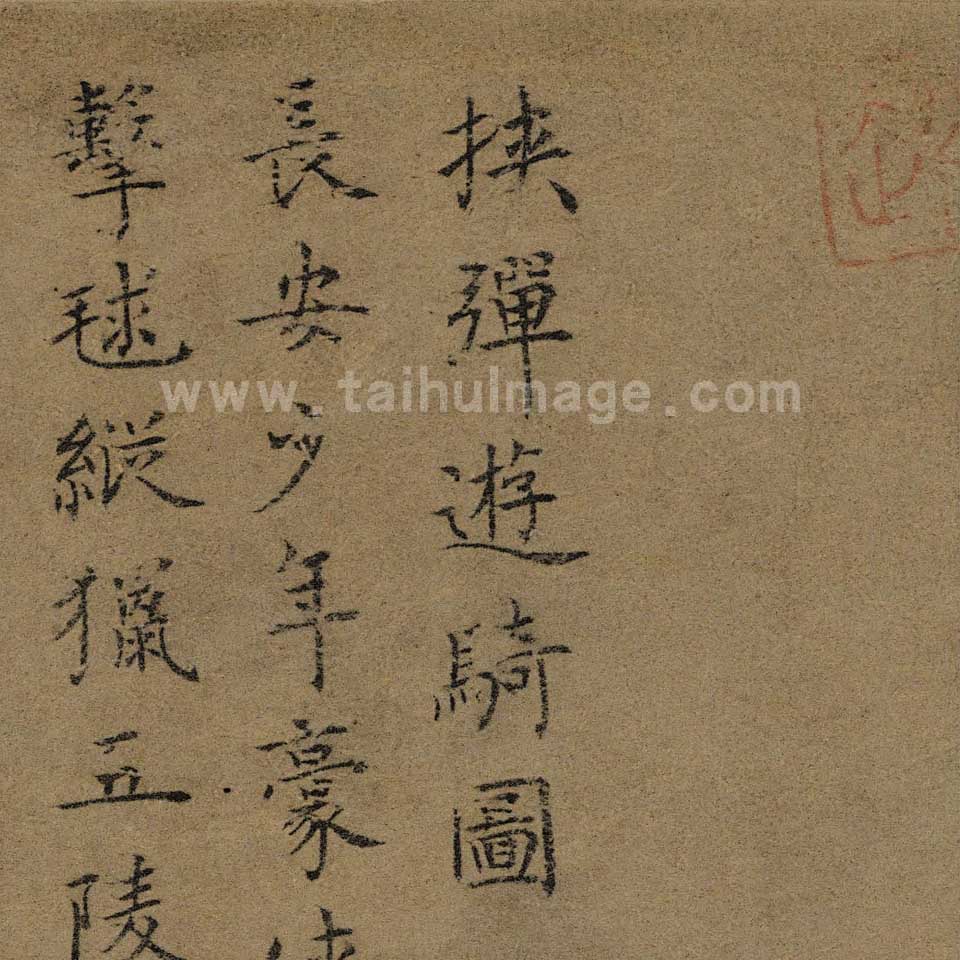 挾彈遊騎圖
長安少年豪俠
擊毬縱獵五陵
www.taihuImage.com